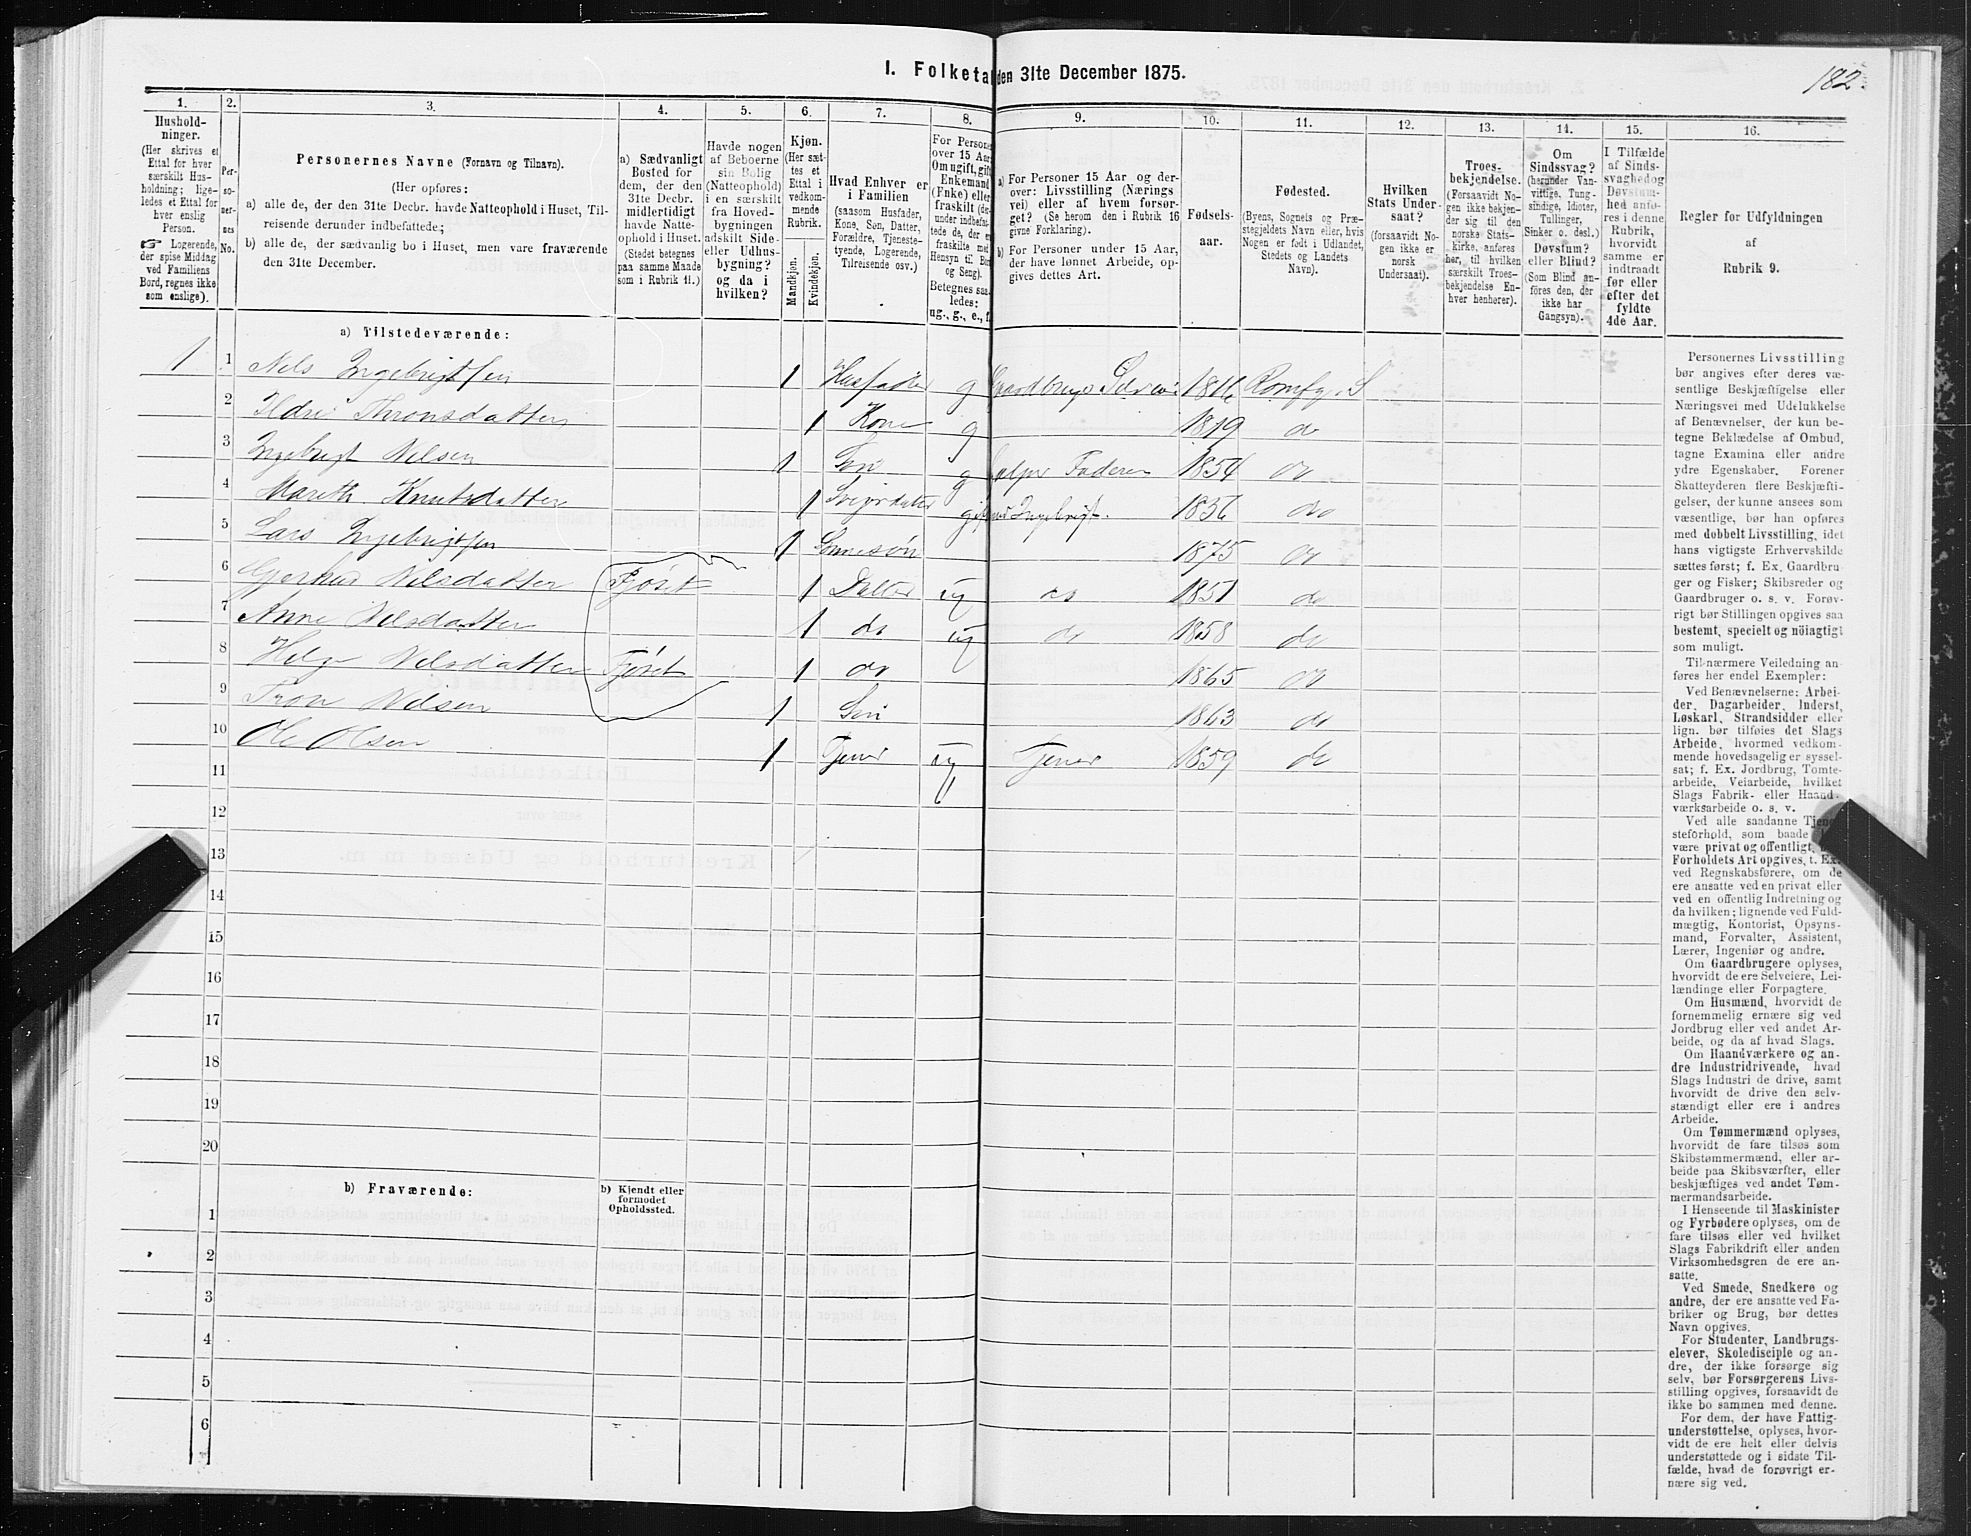 182.
I. Folketa den 31te December 1875.
1. 2. 3. 4. 5. 6. 7. 8. 9. 10. 11. 12. 13. 14. 15. 16.
Hushold-
ninger.
(Her skrives et
Ettal for hver
særskilt Hus-
holdning; lige-
ledes et Ettal for
hver enslig
Person.
☞ Logerende,
der spise Middag
ved Familiens
Bord, regnes ikke
som enslige).
Per-
so-
ner-
nes
No.
Personernes Navne (Fornavn og Tilnavn).
(Her opføres:
a) alle de, der den 31te Decbr. havde Natteophold i Huset, Til-
reisende derunder indbefattede;
b) alle de, der sædvanlig bo i Huset, men vare fraværende
den 31te December.
a) Sædvanligt
Bosted for
dem, der den
31te Decbr.
midlertidigt
havde Natte-
ophold i Huset.
(Stedet betegnes
paa samme Maade
som i Rubrik 11.)
Havde nogen
af Beboerne
sin Bolig
(Natteophold)
i en særskilt
fra Hoved-
bygningen
adskilt Side-
eller Udhus-
bygning?
og da i
hvilken?
Kjøn.
(Her sæt-
tes et
Ettal i
vedkom-
mende
Rubrik.
Mandkjøn.
Kvindekjøn.
Hvad Enhver er
i Familien
(saasom Husfader,
Kone, Søn, Datter,
Forældre, Tjeneste-
tyende, Logerende,
Tilreisende osv.)
For Persone
over 15 Aar
Om ugift, gift
Enkemand
(Enke) eller
fraskilt (de-
runder indbefat-
tede de, der er
fraskilte med
Hensyn til Bor
og Seng).
Betegnes saa-
ledes:
ug., g., e., f.
a) For Personer 15 Aar og der-
over: Livsstilling (Nærings-
vei) eller af hvem forsør-
get? (Se herom den i Rubrik 16
givne Forklaring).
b) For Personer under 15 Aar,
der have lønnet Arbeide, op-
gives dettes Art.
Fødsels-
aar.
Fødested.
(Byens, Sognets og Præ-
stegjeldets Navn eller, hvis
Nogen er født i Udlandet,
Stedets og Landets
Navn).
Hvilken
Stats Under-
saat?
(forsaavidt No-
gen ikke er
norsk
Undersaat).
Troes-
bekjendelse.
(Forsaavidt No-
gen ikke bekjen-
der sig til den
norske Stats-
kirke, anføres
her, til hvilken
særskilt Troes-
bekjendelse En-
hver henhører).
Om
Sindssvag?
(herunder Van-
vittige, Tung-
sindige, Idioter,
Tullinger,
Sinker o. desl.)
Døvstum?
eller Blind?
(Som Blind an-
føres den, der
ikke har
Gangsyn).
I Tilfælde
af Sinds-
svaghed og
Døvstum-
hed anfø-
res i denne
Rubrik,
hvorvidt
samme er
indtraadt
før eller
efter det
fyldte
4de Aar.
Regler for Udfyldningen
af
Rubrik 9.
a) Tilstedeværende:
1 1 Nels Ingebrigtsen 1 Husfader g Gaardbruger Selveier 1816 Romfg. S
2 Ildri Thronsdatter 1 Kone g 1819 do
3 Ingebrigt Nelsen 1 Søn g Hjelper Faderen 1854 do
4 Marith Knutsdatter 1 Svigerdatter g gift med Ingebrigt. 1856 do
5 Lars Ingebrigtsen 1 Sønnesøn 1875 do
6 Nelsdatter Fjøset 1 Datter ug do 1851 do
7 Anne Nelsdatter 1 do ug do 1858 do
8 Nelsdatter Fjøset 1 do 1865 do
9 Tron Nelsen 1 Søn 1863 do
10 Ole Olsen 1 Tjener ug Tjener 1859 do
11
12
13
14
15
16
17
18
19
20
b) Fraværende:
b) Kjendt eller
formodet
Opholdssted.
1
2
3
4
5
6
Personernes Livsstilling
bør angives efter deres væ-
sentlige Beskjæftigelse eller
Næringsvei med Udelukkelse
af Benævnelser, der kun be-
tegne Beklædelse af Ombud,
tagne Examina eller andre
ydre Egenskaber. Forener
Skatteyderen flere Beskjæfti-
gelser, der kunne ansees som
væsentlige, bør han opføres
med dobbelt Livsstilling, idet
hans vigtigste Erhvervskilde
sættes først; f. Ex. Gaardbru-
ger og Fisker; Skibsreder og
Gaardbruger o. s. v. Forøv-
rigt bør Stillingen opgives saa
bestemt, specielt og nöiagtigt
som muligt.
Til nærmere Veiledning an-
føres her endel Exempler:
Ved Benævnelserne: Arbei-
der, Dagarbeider, Inderst,
Løskarl, Strandsidder eller
lign. bør tilføies det Slags
Arbeide, hvormed vedkom-
mende hovedsagelig er syssel-
sat; f. Ex. Jordbrug, Tomte-
arbeide, Veiarbeide, hvilket
Slags Fabrik- eller Haand-
værksarbeide o. s. v.
Ved alle saadanne Tjene-
steforhold, som baade
være privat og offentligt,
Forholdets Art opgives, t. Ex.
ved Regnskabsførere, om de
ere ansatte ved en privat eller
ved en offentlig Indretning og
da hvilken; lignende ved Fuld-
mægtig, Kontorist, Opsyns-
mand, Forvalter, Assistent,
Lærer, Ingeniør og andre.
Om Gaardbrugere oplyses,
hvorvidt de ere Selveiere, Lei-
lændinge eller Forpagtere.
Om Husmænd, hvorvidt de
fornemmelig ernære sig ved
Jordbrug eller ved andet Ar-
beide, og da af hvad Slags.
Om Haandværkere og an-
dre Industridrivende, hvad
Slags Industri de drive, samt
hvorvidt de drive den selv-
stændigt eller ere i andres
Arbeide.
Om Tømmermænd oplyses,
hvorvidt de fare tilsøs som
Skibstømmermænd, eller ar-
beide paa Skibsværfter, eller
beskjæftiges ved andet Tøm-
mermandsarbeide.
I Henseende til Maskinister
og Fyrbødere oplyses, om de
fare tilsøs eller ved hvilket
Slags Fabrikdrift eller anden
Virksomhedsgren de ere an-
satte.
Ved Smede, Snedkere og
andre, der ere ansatte ved Fa-
briker og Brug, bør dettes
Navn opgives.
For Studenter, Landbrugs-
elever, Skoledisciple og an-
dre, der ikke forsørge sig
selv, bør Forsørgerens Livs-
stilling opgives, forsaavidt de
ikke bo sammen med denne.
For dem, der have Fattig-
understøttelse, oplyses, hvor-
vidt de ere helt eller delvis
understøttede og i sidste Til-
fælde, hvad de forøvrigt er-
nære sig ved.